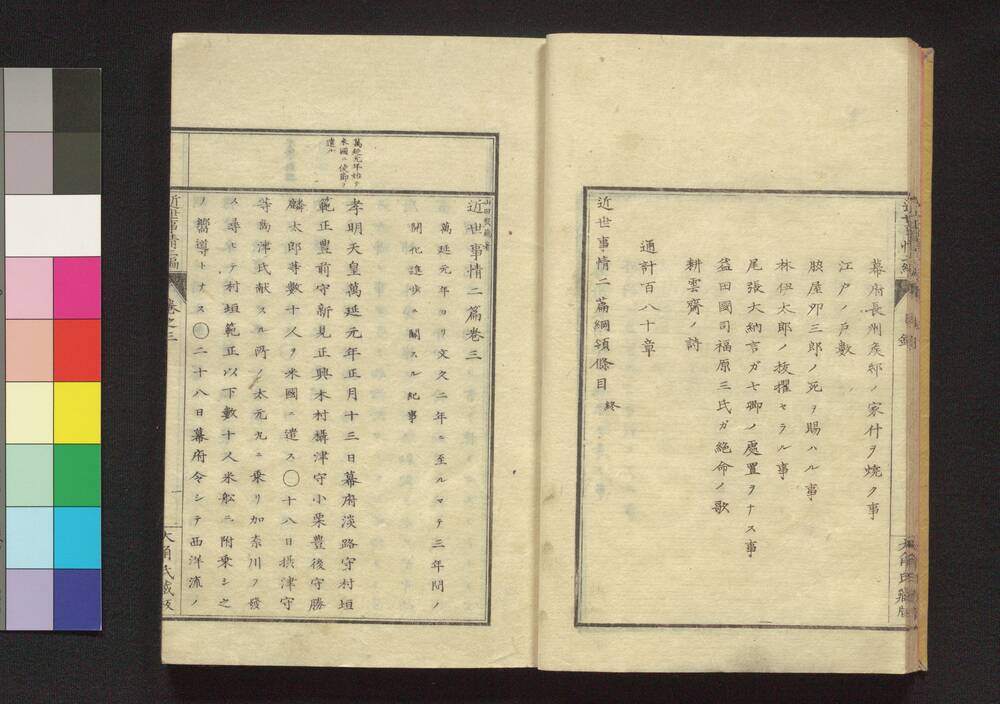 幕府長州矦邸ノ家什ヲ焼ク事
江戸ノ戸數
脥屋卯三郎ノ死ヲ賜ハル事
林伊太郎ノ抜擢セラル事
尾張大納言ガ七卿ノ處置ヲナス事
益田國司福原三氏ガ絶命ノ歌
耕雲齋ノ詩
通計百八十章
近世事情二篇綱領條目 終
萬延元年始テ
米國ニ使節ヲ
遣ル
近世事情二篇卷三
萬延元年ヨリ文久二年ニ至ルマテ三年間ノ
開化進歩ニ關スル紀事
孝明天皇萬延元年正月十三日幕府淡路守村垣
範正豊前守新見正興木村攝津守小栗豊後守勝
麟太郎等數十人ヲ米國ニ遣ス〇十八日摂津守
等島津氏献スル所ノ太元丸ニ乗リ加奈川ヲ發
ス尋ヒテ村垣範正以下數十人米舩ニ附乗シ之
ノ嚮導トナス〇二十八日幕府令シテ西洋流ノ
近世事情二編 卷之三 一 大角氏藏版